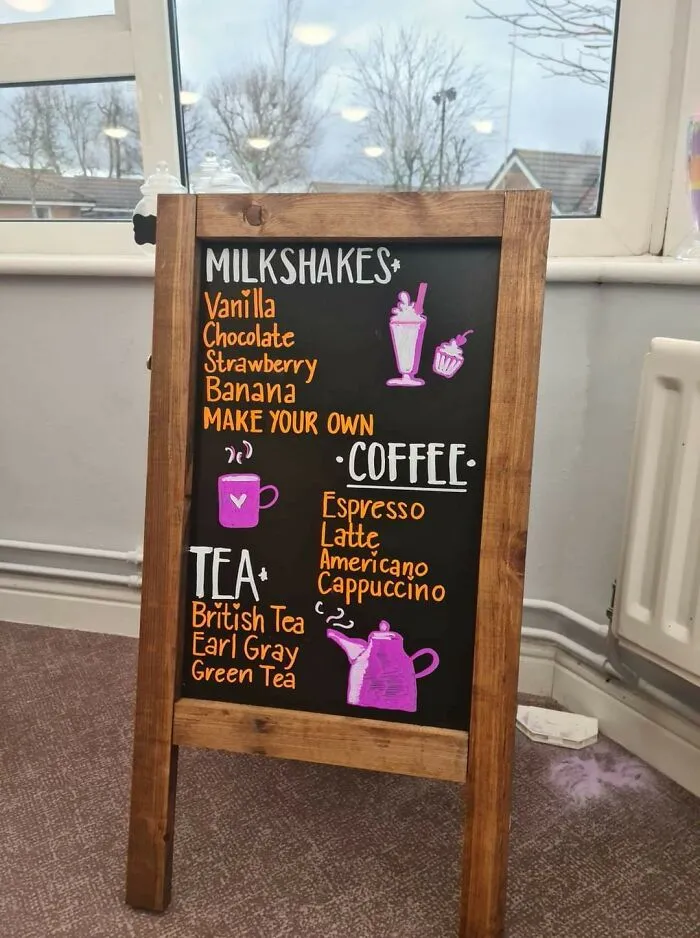 MILKSHAKES
Vanilla
Chocolate
Strawberry
Banana
MAKE YOUR OWN
·COFFEE·
Espresso
Latte
Americano
Cappuccino
TEA
British Tea
Earl Gray
Green Tea